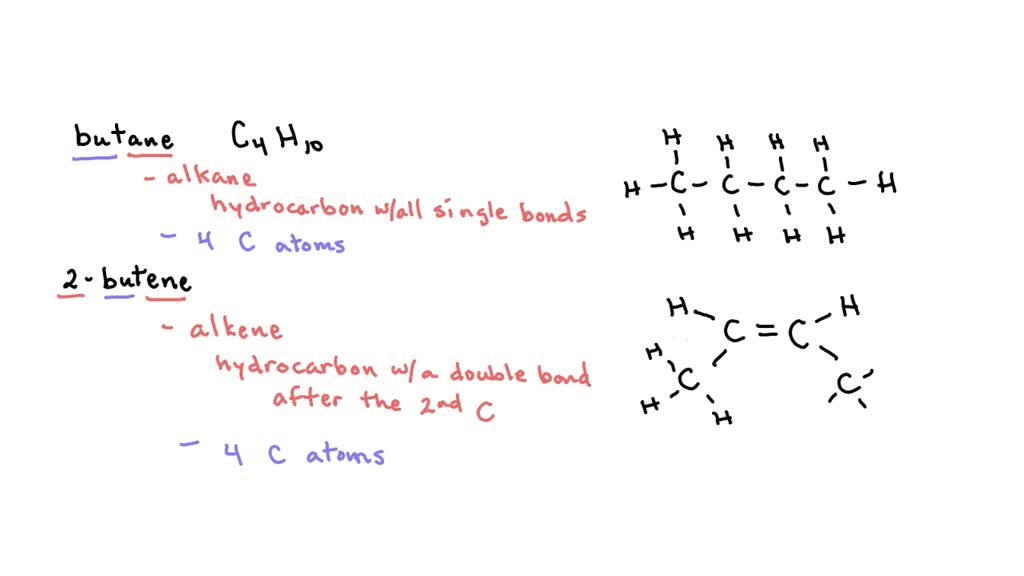 butane C₄H₁₀
- alkane
hydrocarbon w/all single bonds
- 4 C atoms
2-butene
- alkene
hydrocarbon w/a double bond
after the 2nd C
- 4 C atoms
H H H H
H - C - C - C - C - H
H H H H
H C = C H
H C C
H H